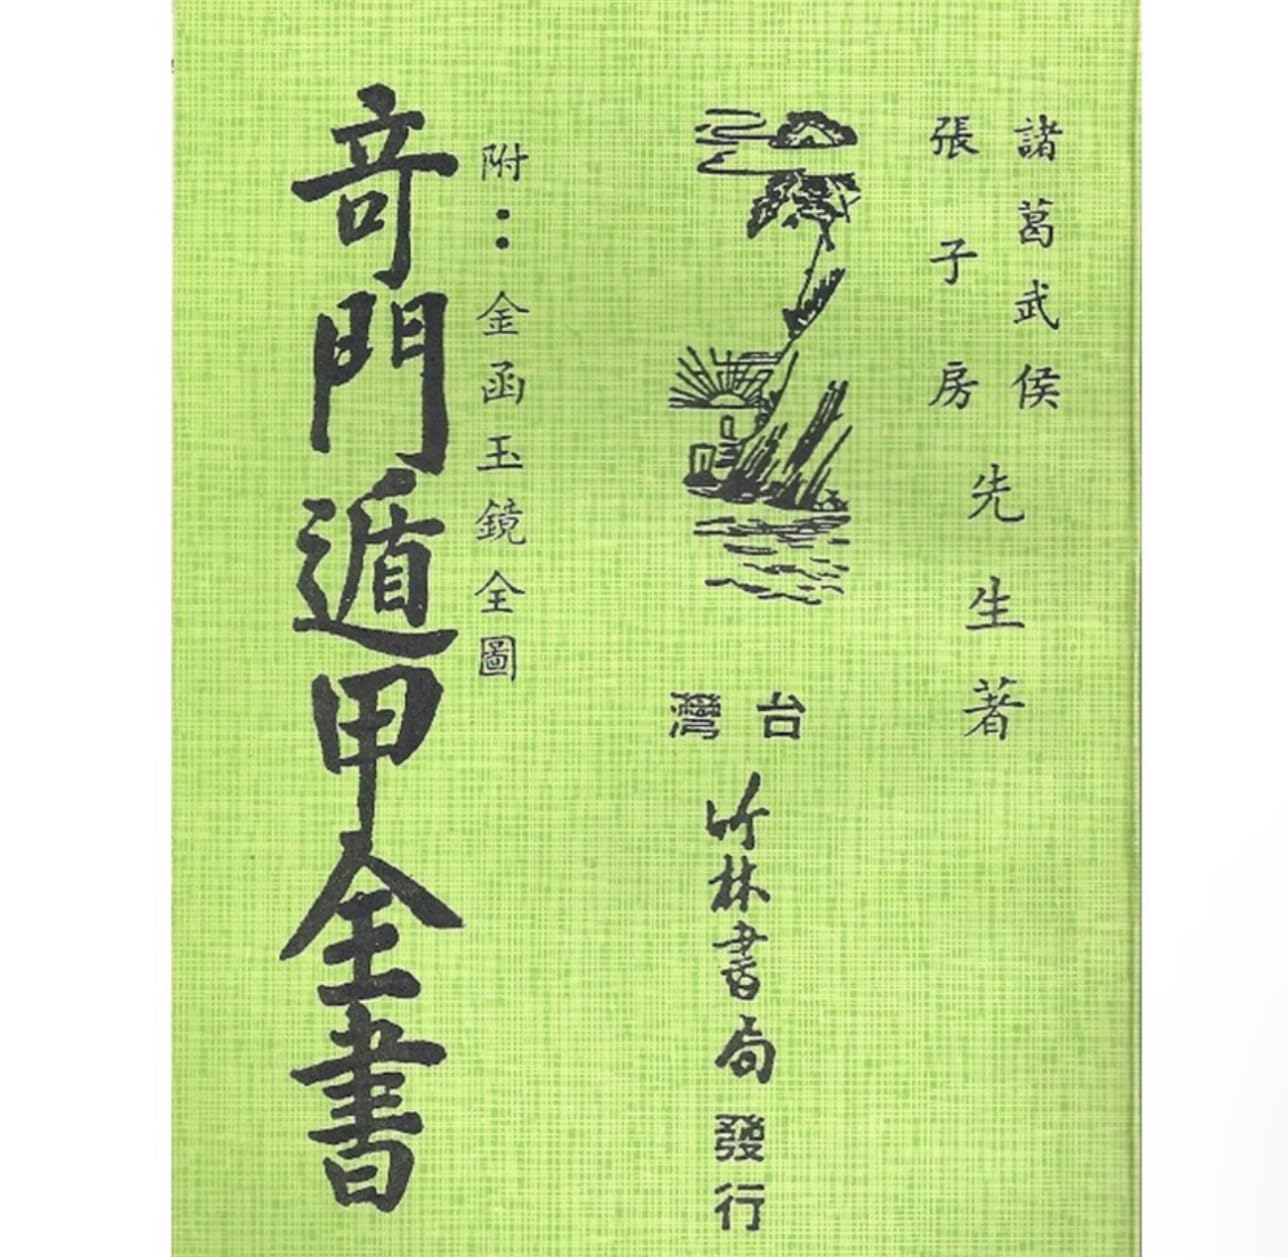 諸葛武侯
張子房
先生著
台灣
竹林書局
發行
附：金函玉鏡全圖
竒門遁甲全書